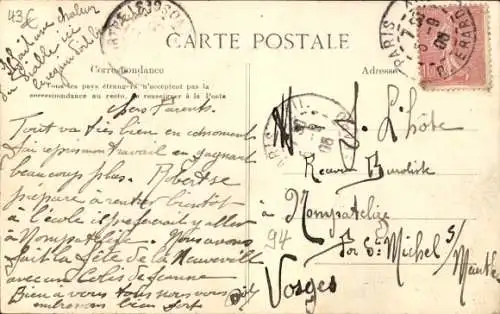 43€
Il fait une chaleur
du diable ici
CARTE POSTALE
Correspondance
Tous les pays étrangers n'acceptent pas la
correspondance au recto, se renseigner à la Poste
Adresse
PARIS
08
Chers Parents.
Tout va très bien en ce moment
J'ai repris mon travail en gagnant
beaucoup plus. Robert se
prépare à rentrer bientôt
à l'école il pourrait y aller
à Nompatelize. Nous avons
fait la fête de la Neuveville
avec un Colis de Jeanne
Bien à vous tous nous vous
embrassons bien fort
L'hôte
Receveur Buraliste
à Nompatelize
94
Par St Michel s/
Meurthe
Vosges